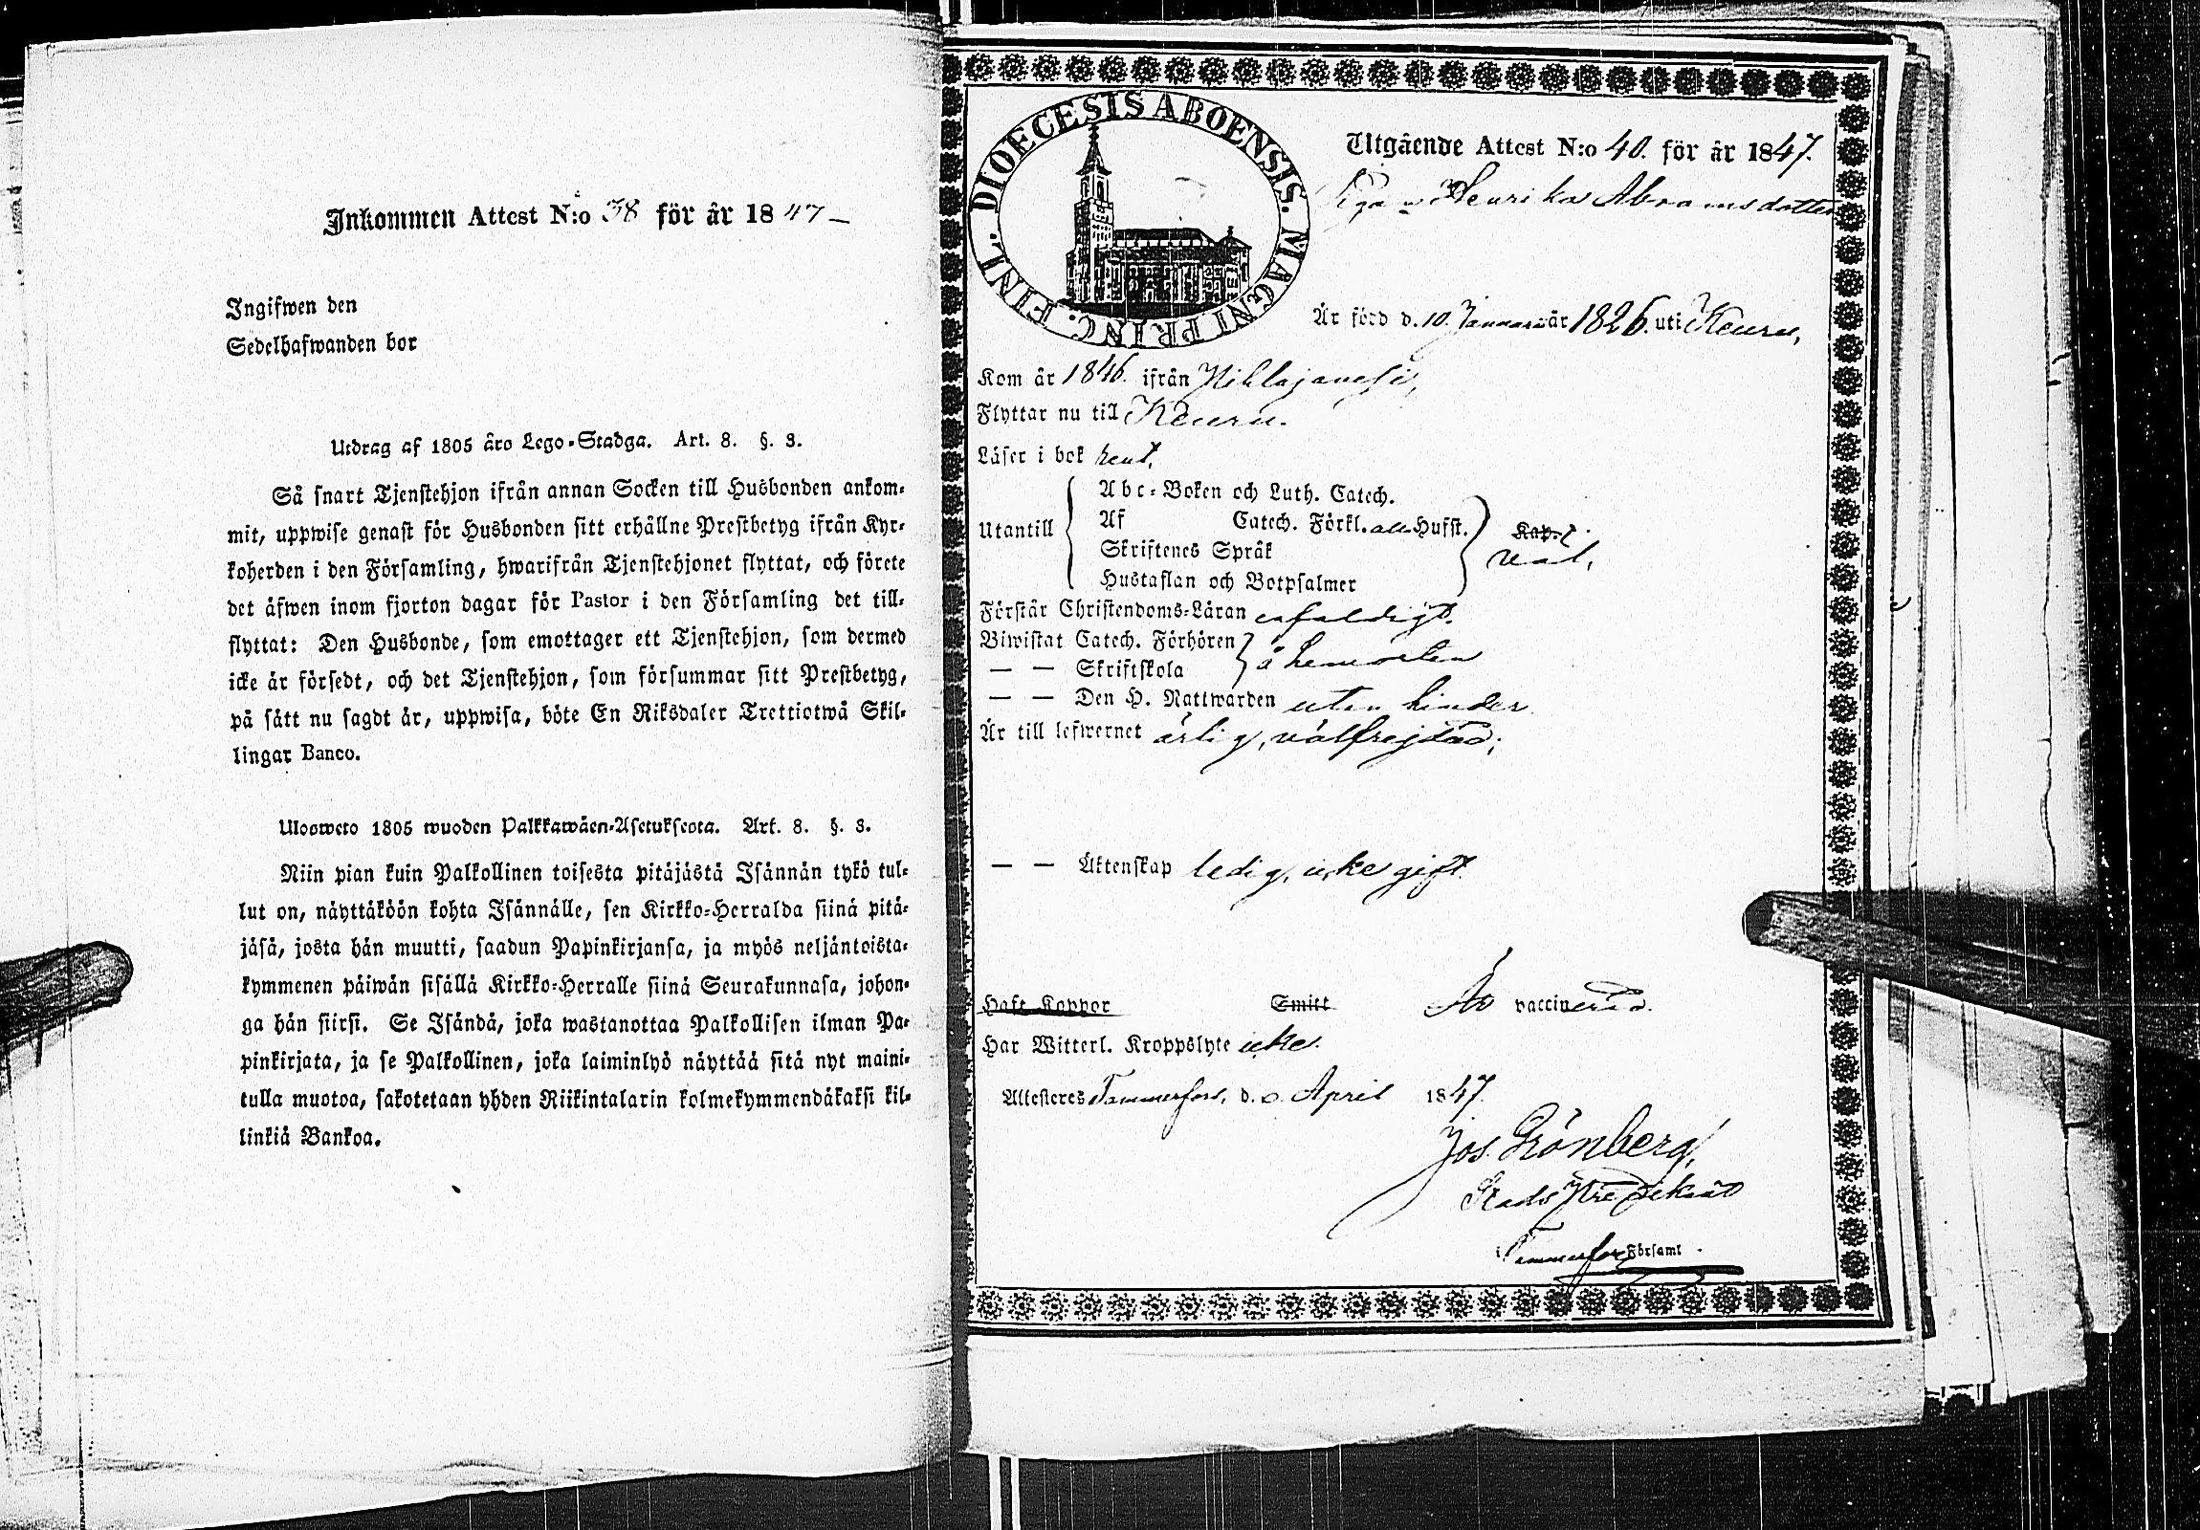 Inkommen Attest N:o 38 för år 1847
Ingifwen den
Sedelhafwanden bor
Utdrag af 1805 års Lego-Stadga. Art. 8. §. 3.
Så snart Tjenstehjon ifrån annan Socken till Husbonden ankom-
mit, uppwise genast för Husbonden sitt erhållne Prestbetyg ifrån Kyr-
koherden i den Församling, hwarifrån Tjenstehjonet flyttat, och förete
det äfwen inom fjorton dagar för Pastor i den Församling det till-
flyttat: Den Husbonde, som emottager ett Tjenstehjon, som dermed
icke är försedt, och det Tjenstehjon, som försummar sitt Prestbetyg,
på sätt nu sagdt är, uppwisa, böte En Riksdaler Trettiotwå Skil-
lingar Banco.
Ulosweto 1805 wuoden Palkkawäen-Asetuksesta. Art. 8. §. 3.
Niin pian kuin Palkollinen toisesta pitäjästä Isännän tykö tul-
lut on, näyttäköön kohta Isännälle, sen Kirkko-Herralda siinä pitä-
jäsä, josta hän muutti, saadun Papinkirjansa, ja myös neljäntoista-
kymmenen päiwän sisällä Kirkko-Herralle siinä Seurakunnasa, johon-
ga hän siirsi. Se Isändä, joka wastanottaa Palkollisen ilman Pa-
pinkirjata, ja se Palkollinen, joka laiminlyö näyttää sitä nyt maini-
tulla muotoa, sakotetaan yhden Riikintalarin kolmekymmendäkaksi kil-
linkiä Bankoa.
DIOECESIS ABOENSIS. MAGNI PRINC. FINL.
Utgående Attest N:o 40. för år 1847.
Pigan Henrika Abramsdotter
Är född d. 10. Januari år 1826. uti Keuru,
Kom år 1846. ifrån
Flyttar nu till Keuru.
Läser i bok rent,
Utantill
Abc-Boken och Luth. Catech.
Af Catech. Förkl. alla Hufst.
Skriftenes Språk
Hustaflan och Botpsalmer
Kap.
väl,
Förstår Christendoms-Läran enfaldigt.
Biwistat Catech. Förhören
— — Skriftskola
å hemorten
— — Den H. Nattwarden utan hinder
Är till lefwernet ärlig, välfrejdad;
— — Äktenskap ledig, icke gift.
Haft Koppor Smitt Är vaccinerad.
Har Witterl. Kroppslyte icke.
Attesteres Tammerfors, d. April 1847.
Jos. Grönberg,
Stads Predikant
i Tammerfors Församl.